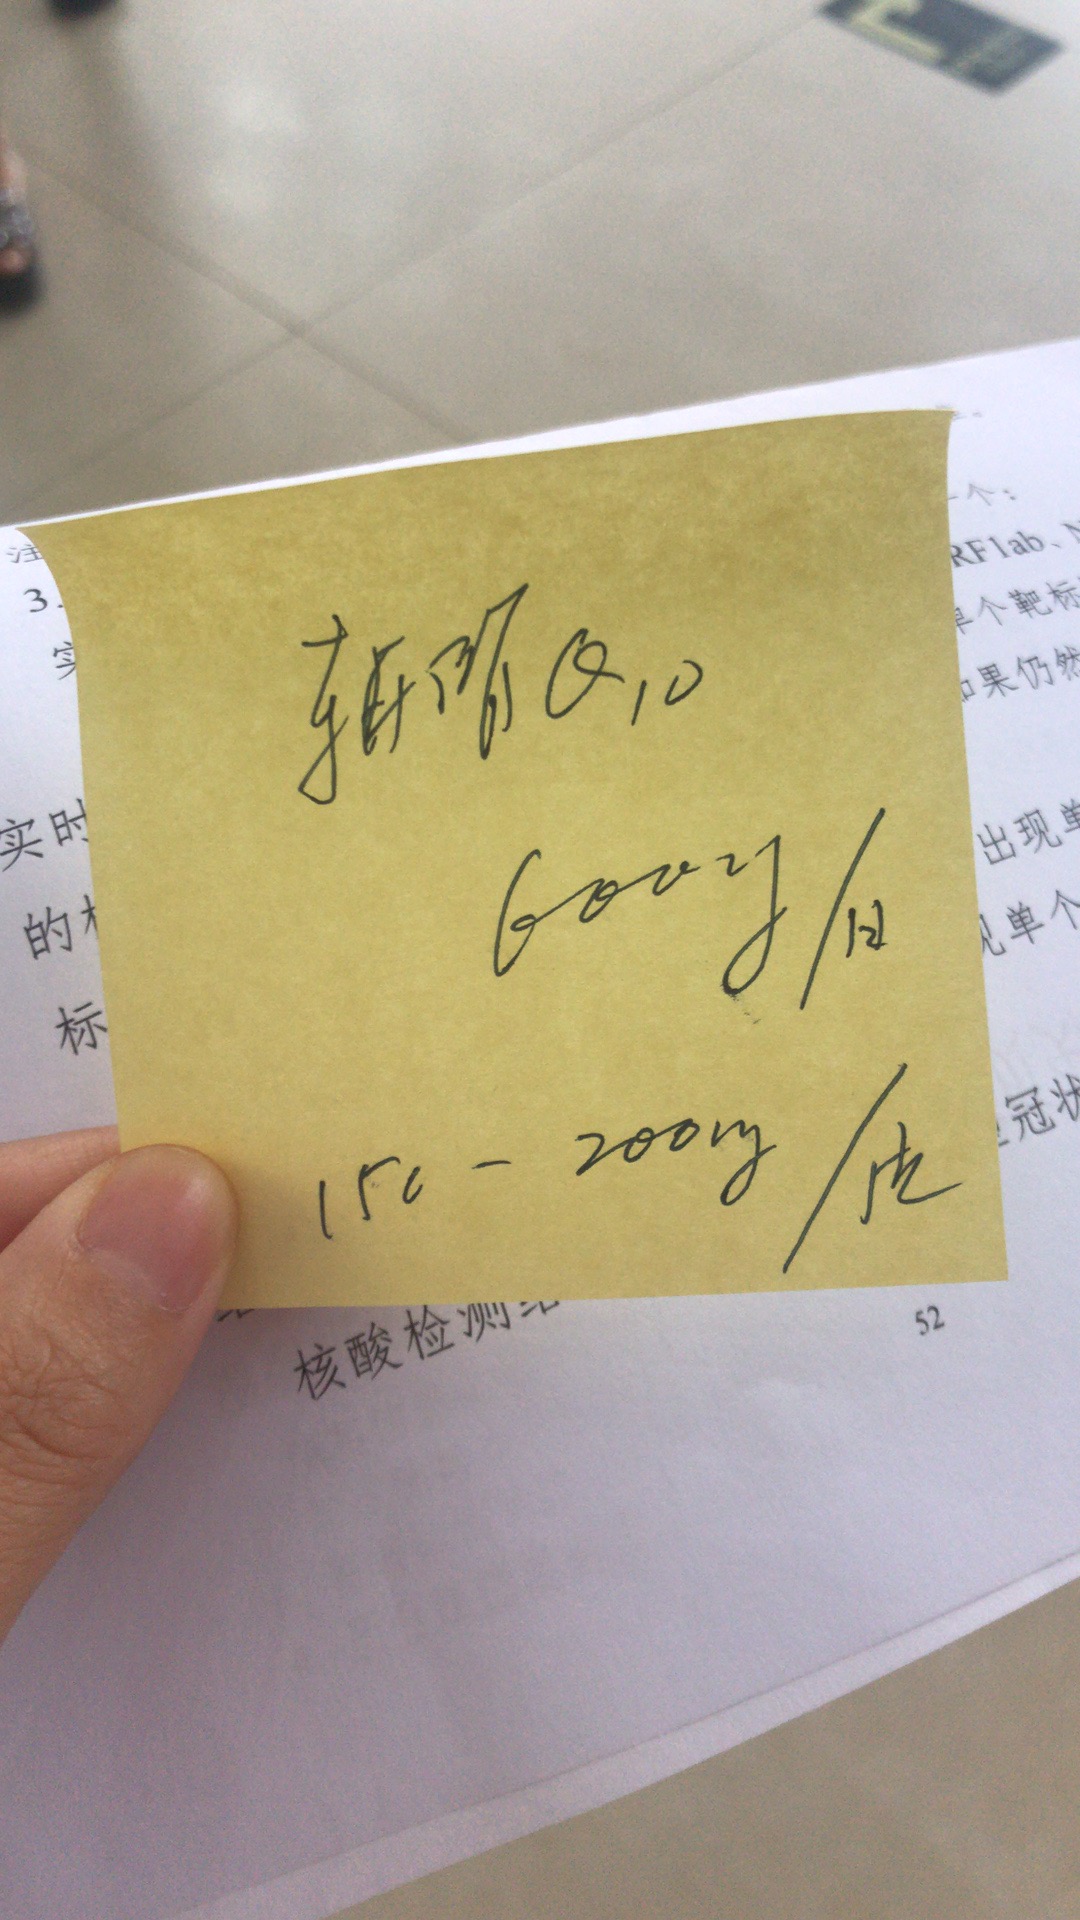 一个:
注
RFlab、
3.
单个靶标
实
如果仍然
辅酶Q10
600mg/日
150-200mg/次
实时
出现单
的
现单个
标
冠状
核酸检测结
52